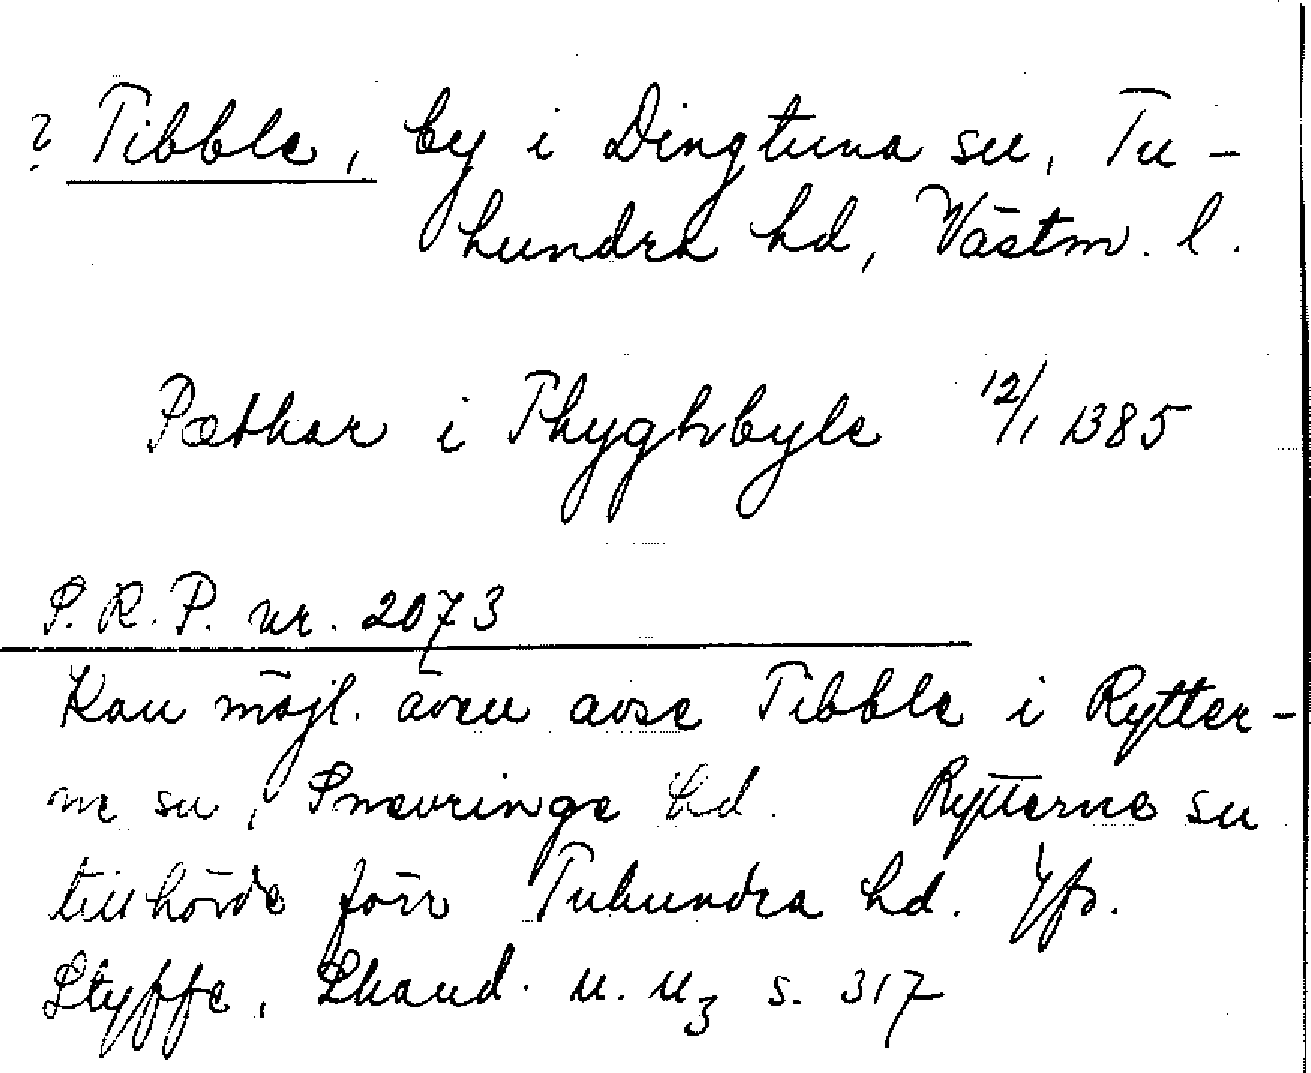 ? Tibble, by i Dingtuna sn, Tu-
hundra hd, Västm. l.
Pæthar i Thyghbyle 12/1 1385
S.R.P. nr. 2073
Kan möjl. även avse Tibble i Rytter-
ne sn, Snevringe hd. Rytterne sn
tillhörde förr Tuhundra hd. Jfr.
Styffe, Skand. u. U3 s. 317